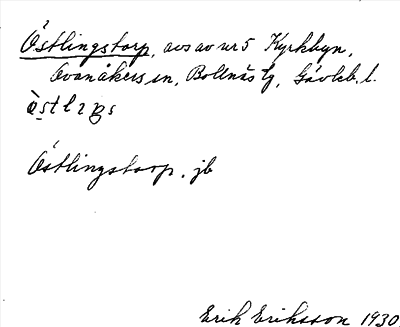 Östlingstorp, avs av nr 5 Kyrkbyn,
Ovanåkers sn, Bollnäs tg, Gävleb. l.
Östlingstorp. jb
Erik Eriksson 1930